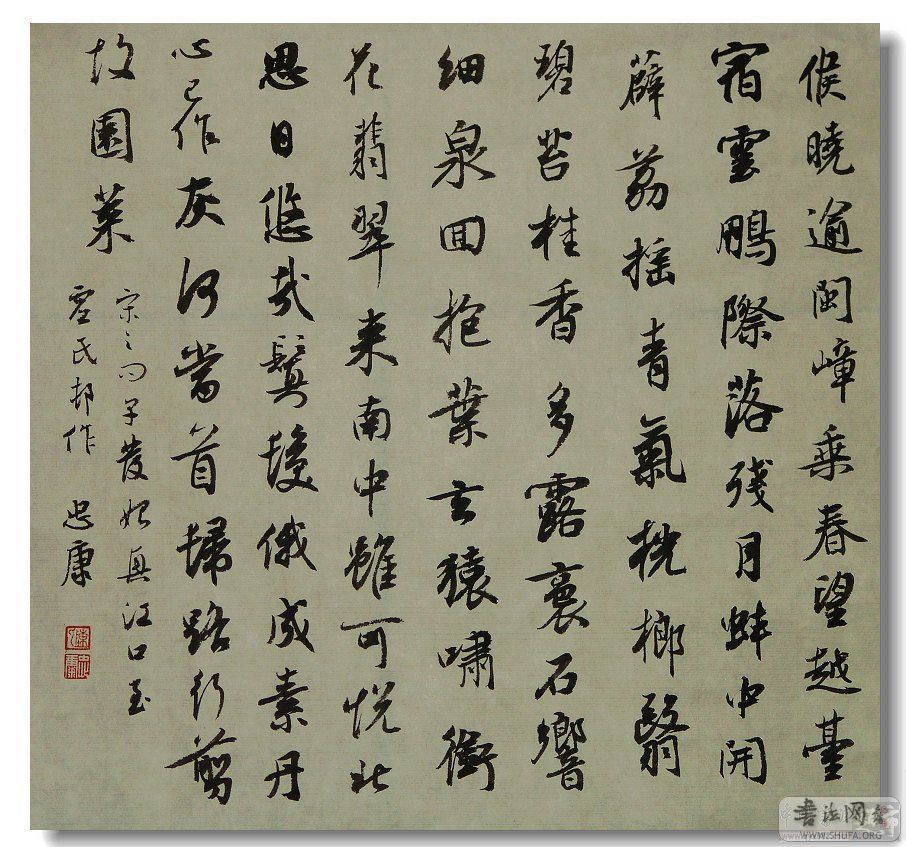 候曉逾閩嶂乘春望越臺
宿雲鵬際落殘月蚌中開
薜荔搖青氣桄榔翳
碧苔桂香多露裛石響
細泉回抱葉玄猿嘯銜
花翡翠來南中雖可悅北
思日悠哉鬒髮俄成素丹
心已作灰何當首歸路行剪
故園萊
宋之問早發始興江口至
虛氏邨作 忠康
書法网
WWW.SHUFA.ORG